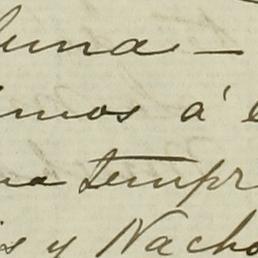 una —
imos á
tempr
y Nacho